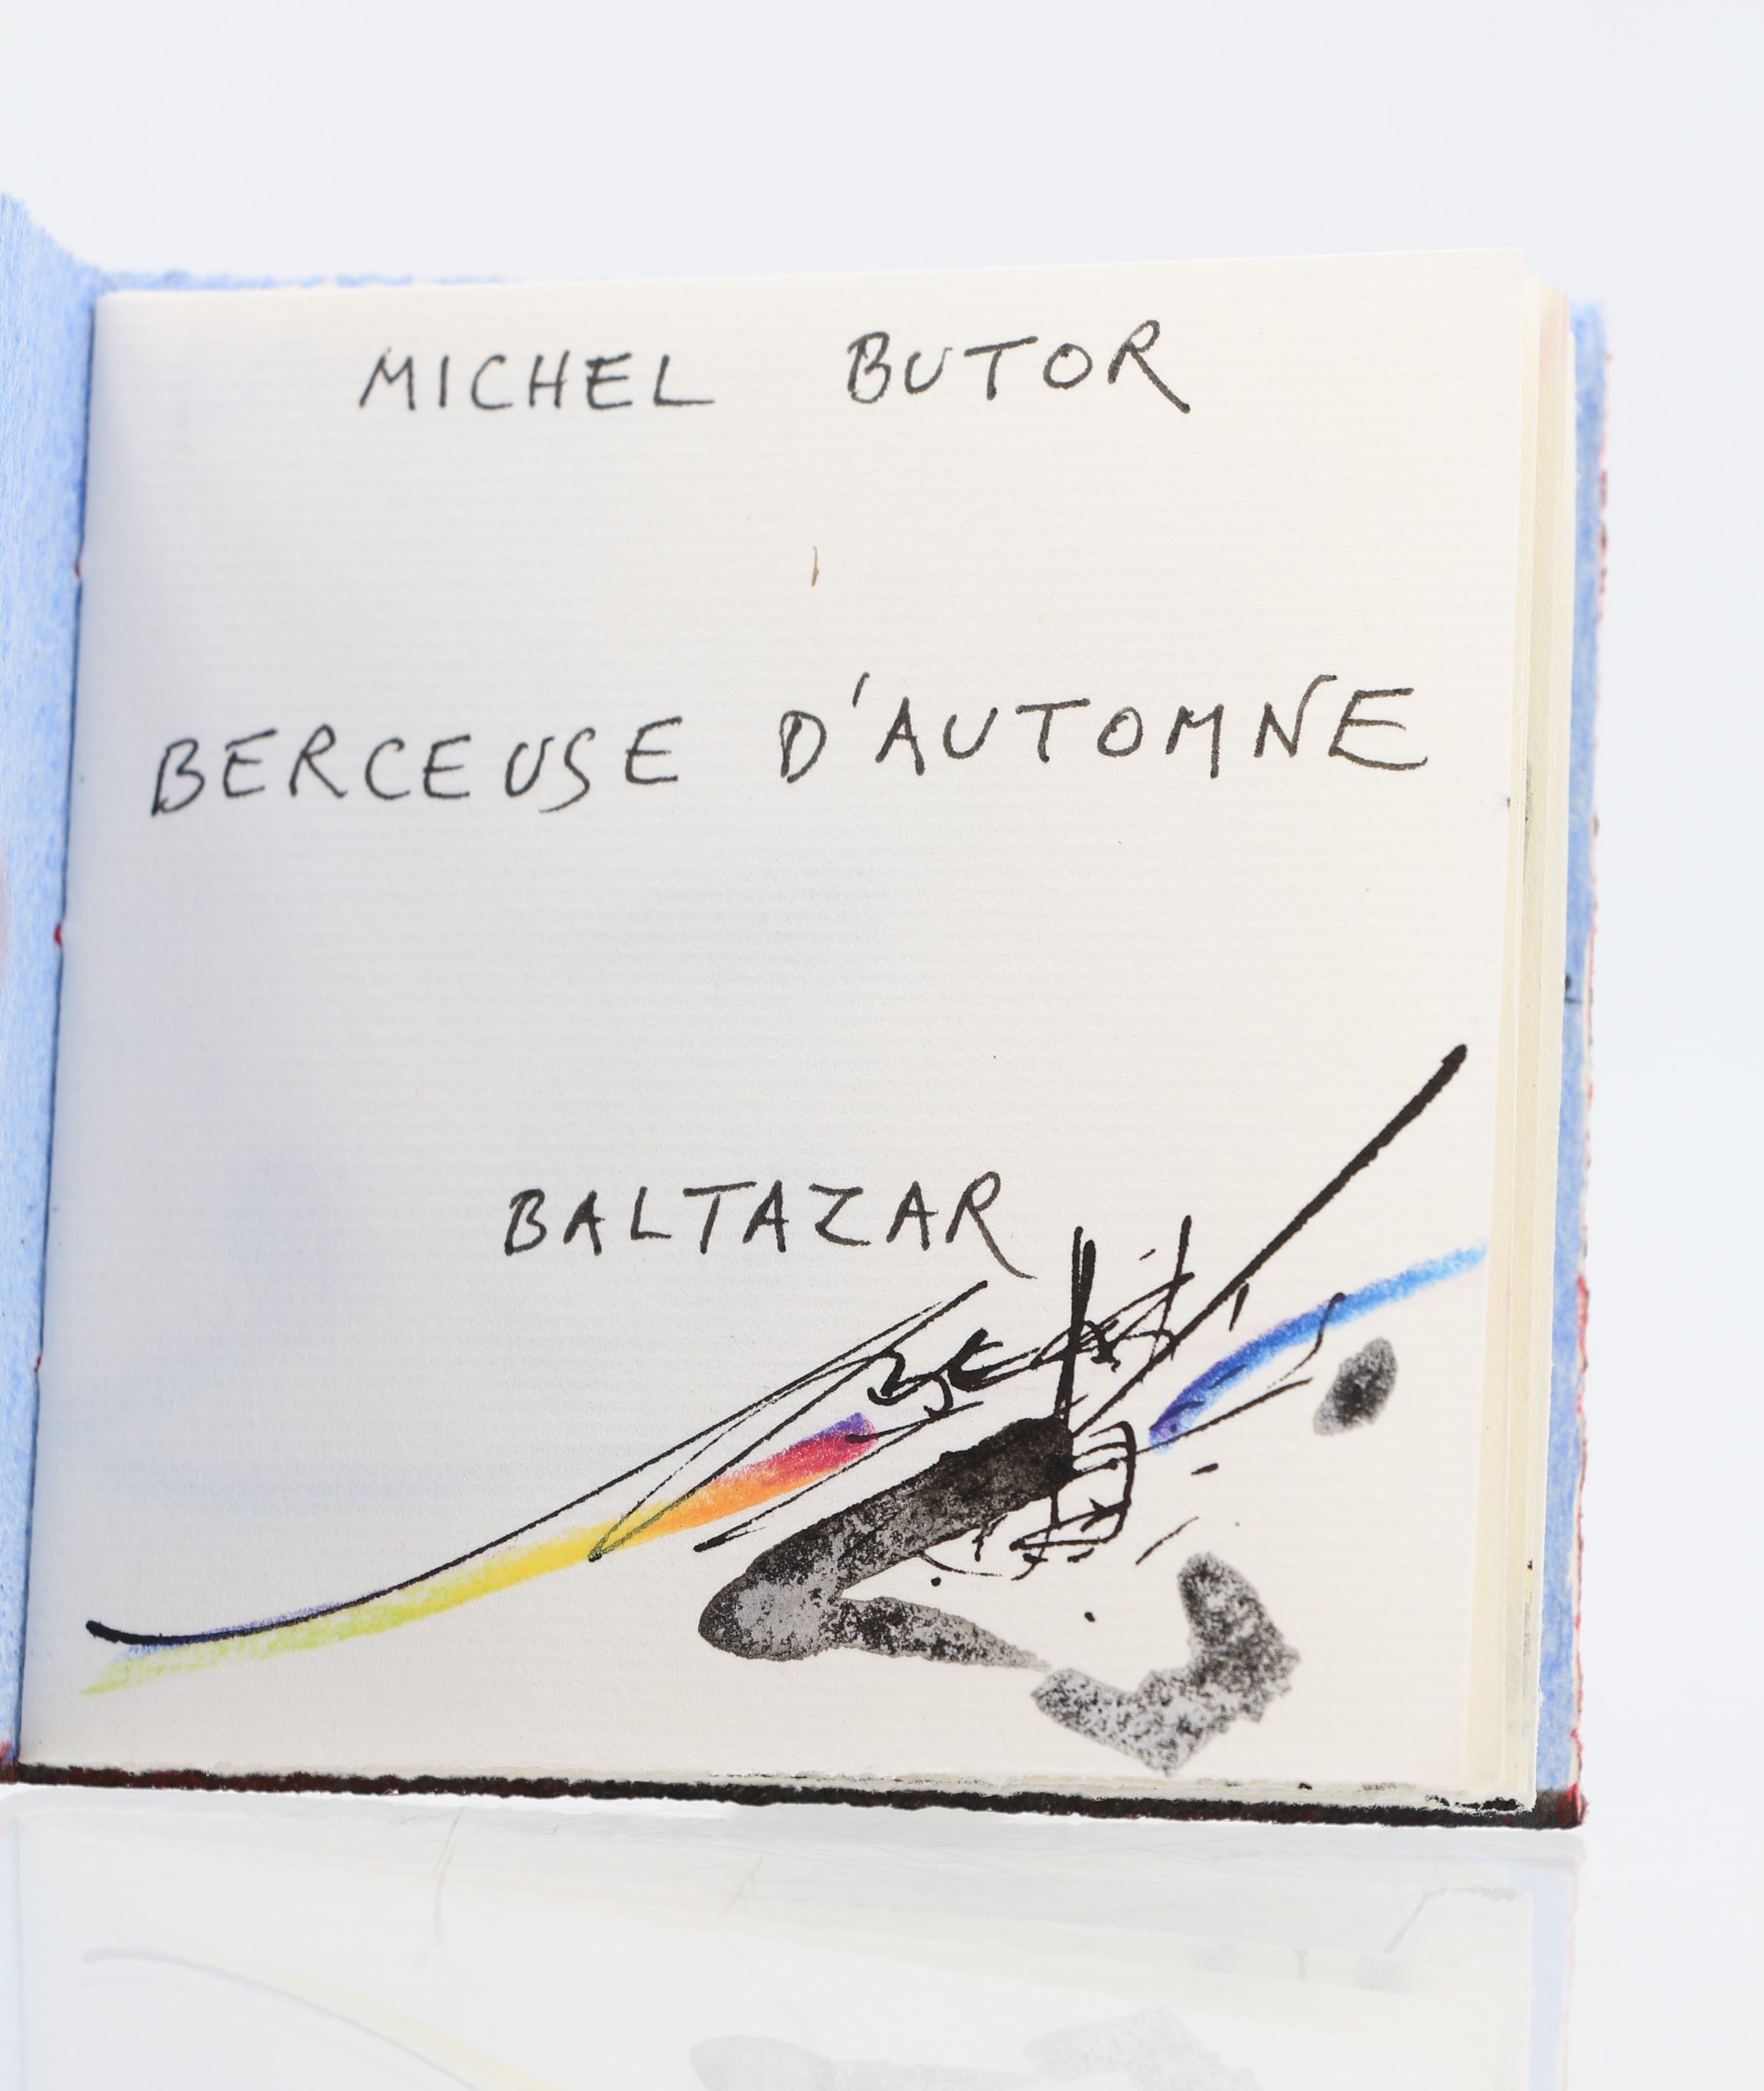 MICHEL BUTOR
BERCEUSE D'AUTOMNE
BALTAZAR